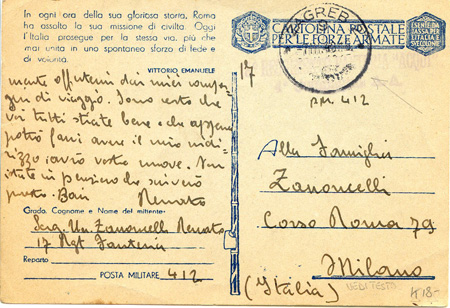 In ogni ora della sua gloriosa storia, Roma
ha assolto la sua missione di civiltà. Oggi
l'Italia prosegue per la stessa via, più che
mai unita in uno spontaneo sforzo di fede e
di volontà.
VITTORIO EMANUELE
mente offertemi dai miei compa-
gni di viaggio. Sono certo che
voi tutti state bene e che appena
potrò farvi avere il mio indi-
rizzo avrò vostre nuove. Non
state in pensiero che scriverò
presto. Baci
Renato
Grado, Cognome e Nome del mittente:
Serg. Un. Zanoncelli Renato
17 Rgt Fanteria
Reparto
POSTA MILITARE 412
ZAGREB
CARTOLINA POSTALE
PER LE FORZE ARMATE
17
P.M. 412
Alla Famiglia
Zanoncelli
Corso Roma 79
Milano
(Italia)
VEDI TESTO
18-